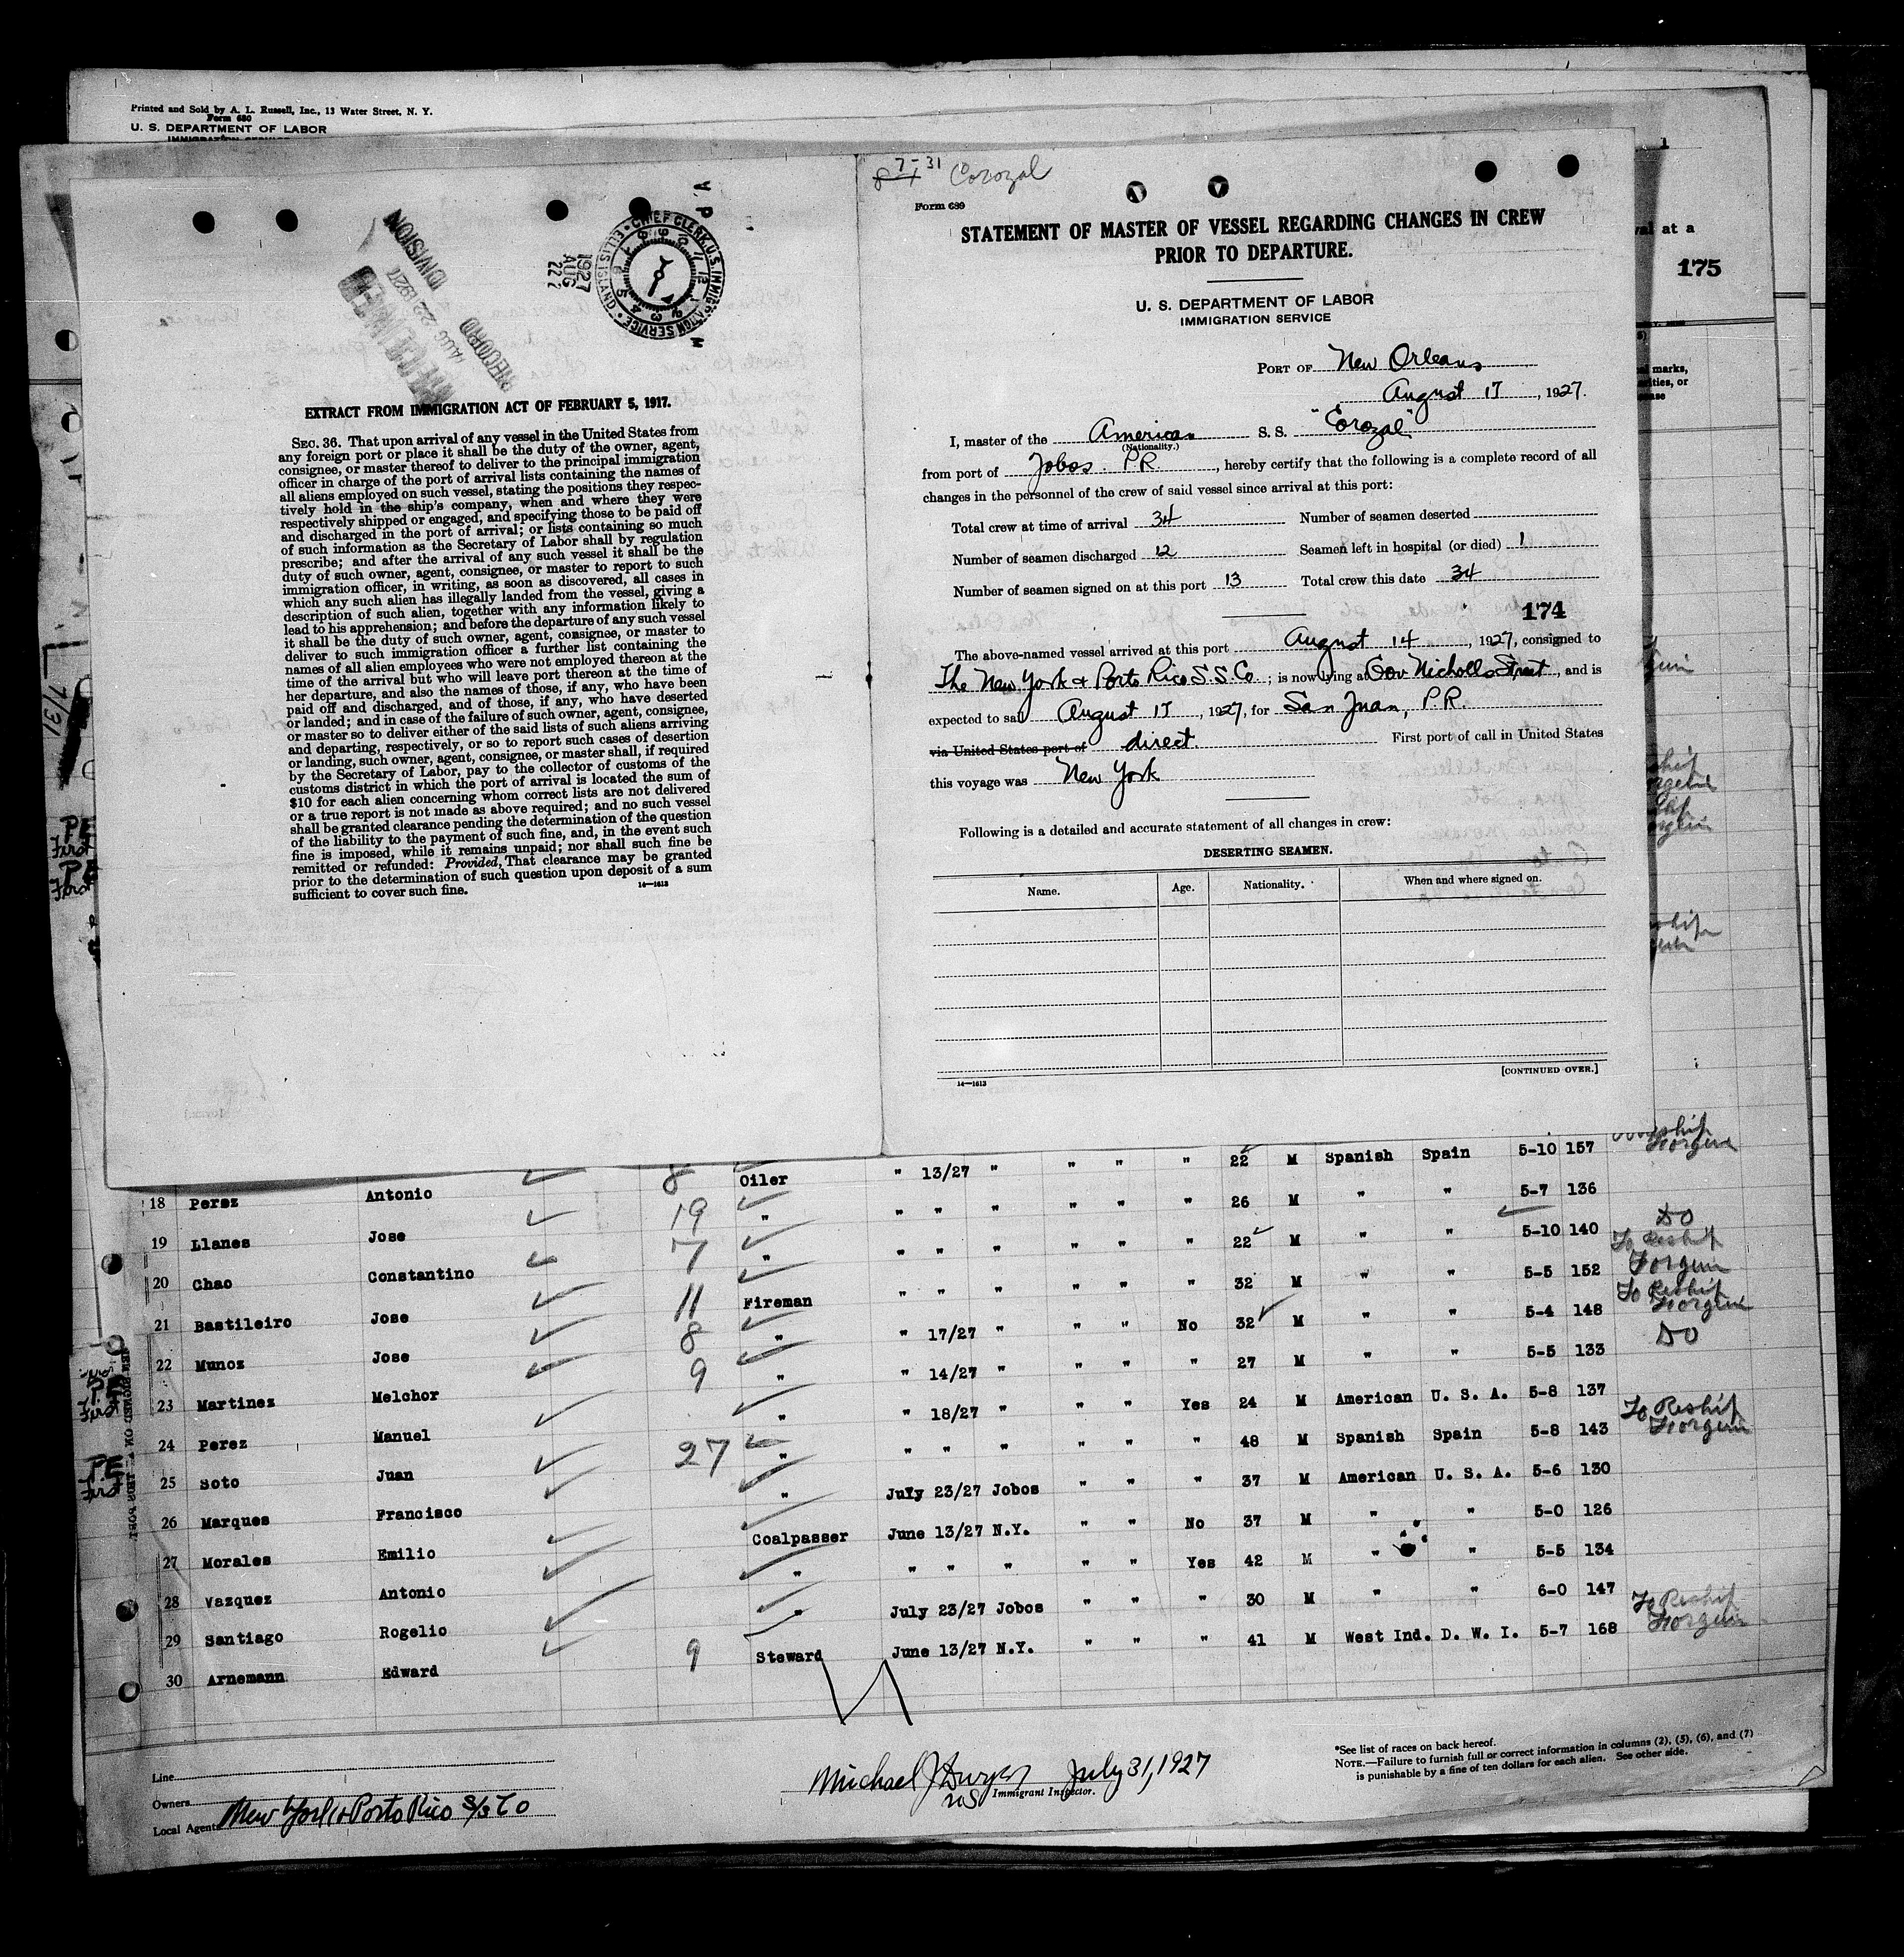 Printed and Sold by A. L. Russell, Inc., 13 Water Street, N. Y.
Form 680
U. S. DEPARTMENT OF LABOR
IMMIGRATION SERVICE
1
val at a
175
marks,
or
7/31
RECORD DIVISION
AUG 22 1927
CHIEF CLERK, U.S. IMMIGRATION SERVICE • ELLIS ISLAND •
1927
AUG
22
P M
EXTRACT FROM IMMIGRATION ACT OF FEBRUARY 5, 1917.
SEC. 36. That upon arrival of any vessel in the United States from
any foreign port or place it shall be the duty of the owner, agent,
consignee, or master thereof to deliver to the principal immigration
officer in charge of the port of arrival lists containing the names of
all aliens employed on such vessel, stating the positions they respec-
tively hold in the ship's company, when and where they were
respectively shipped or engaged, and specifying those to be paid off
and discharged in the port of arrival; or lists containing so much
of such information as the Secretary of Labor shall by regulation
prescribe; and after the arrival of any such vessel it shall be the
duty of such owner, agent, consignee, or master to report to such
immigration officer, in writing, as soon as discovered, all cases in
which any such alien has illegally landed from the vessel, giving a
description of such alien, together with any information likely to
lead to his apprehension; and before the departure of any such vessel
it shall be the duty of such owner, agent, consignee, or master to
deliver to such immigration officer a further list containing the
names of all alien employees who were not employed thereon at the
time of the arrival but who will leave port thereon at the time of
her departure, and also the names of those, if any, who have been
paid off and discharged, and of those, if any, who have deserted
or landed; and in case of the failure of such owner, agent, consignee,
or master so to deliver either of the said lists of such aliens arriving
and departing, respectively, or so to report such cases of desertion
or landing, such owner, agent, consignee, or master shall, if required
by the Secretary of Labor, pay to the collector of customs of the
customs district in which the port of arrival is located the sum of
$10 for each alien concerning whom correct lists are not delivered
or a true report is not made as above required; and no such vessel
shall be granted clearance pending the determination of the question
of the liability to the payment of such fine, and, in the event such
fine is imposed, while it remains unpaid; nor shall such fine be
remitted or refunded: Provided, That clearance may be granted
prior to the determination of such question upon deposit of a sum
sufficient to cover such fine.
14—1613
7-31 Corozal
Form 689
STATEMENT OF MASTER OF VESSEL REGARDING CHANGES IN CREW
PRIOR TO DEPARTURE.
U. S. DEPARTMENT OF LABOR
IMMIGRATION SERVICE
PORT OF New Orleans
August 17, 1927.
I, master of the American S. S. "Corozal"
(Nationality.)
from port of Jobos P R, hereby certify that the following is a complete record of all
changes in the personnel of the crew of said vessel since arrival at this port:
Total crew at time of arrival 34 Number of seamen deserted
Number of seamen discharged 12 Seamen left in hospital (or died) 1
Number of seamen signed on at this port 13 Total crew this date 34
174
The above-named vessel arrived at this port August 14, 1927, consigned to
The New York & Porto Rico S.S. Co; is now lying at Gov Nicholls Street, and is
expected to sail August 17, 1927, for San Juan, P.R.
via United States port of direct. First port of call in United States
this voyage was New York
Following is a detailed and accurate statement of all changes in crew:
DESERTING SEAMEN.
Name. Age. Nationality. When and where signed on.
14—1613 [CONTINUED OVER.]
8 Oiler " 13/27 " " " " 22 M Spanish Spain 5-10 157
18 Perez Antonio 19 " " " " " " " 26 M " " 5-7 136
19 Llanes Jose 7 " " " " " " " 22 M " " 5-10 140 DO
20 Chao Constantino 11 Fireman " " " " " " 32 M " " 5-5 152 To Reship Foreign
21 Bastileiro Jose 8 " " 17/27 " " " No 32 M " " 5-4 148 To Reship Foreign
22 Munoz Jose 9 " " 14/27 " " " " 27 M " " 5-5 133 DO
23 Martinez Melchor " " 18/27 " " " Yes 24 M American U. S. A. 5-8 137
24 Perez Manuel 27 " " " " " " " 48 M Spanish Spain 5-8 143 To Reship Foreign
25 Soto Juan " July 23/27 Jobos " " " 37 M American U. S. A. 5-6 130
26 Marques Francisco Coalpasser June 13/27 N.Y. " " No 37 M " " 5-0 126
27 Morales Emilio " " " " " " Yes 42 M " " 5-5 134
28 Vazquez Antonio " July 23/27 Jobos " " " 30 M " " 6-0 147
29 Santiago Rogelio Steward June 13/27 N.Y. " " " 41 M West Ind. D. W. I. 5-7 168 To Reship Foreign
30 Arnemann Edward 9
Line
Owners
Local Agents New York & Porto Rico S/S Co
Michael J Dwyer July 31, 1927
Immigrant Inspector.
*See list of races on back hereof.
NOTE.—Failure to furnish full or correct information in columns (2), (5), (6), and (7)
is punishable by a fine of ten dollars for each alien. See other side.